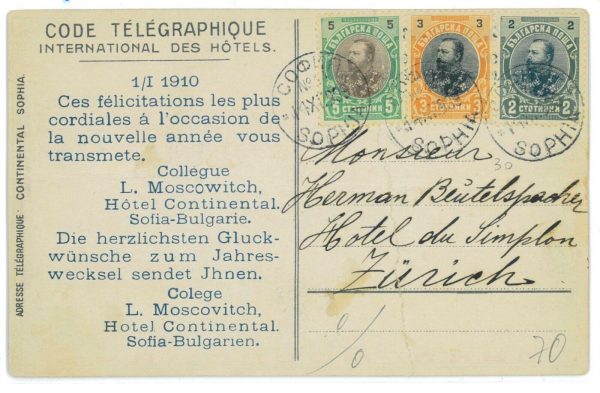 CODE TÉLÉGRAPHIQUE
INTERNATIONAL DES HÔTELS.
ADRESSE TÉLÉGRAPHIQUE: CONTINENTAL SOPHIA.
1/I 1910
Ces félicitations les plus
cordiales á l'occasion de
la nouvelle année vous
transmete.
Collegue
L. Moscowitch,
Hótel Continental.
Sofia-Bulgarie.
Die herzlichsten Gluck-
wünsche zum Jahres-
wecksel sendet Jhnen.
Colege
L. Moscovitch,
Hotel Continental.
Sofia-Bulgarien.
5 5
БЪЛГАРСКА ПОЩА
5 СТОТИНКИ 5
3 3
БЪЛГАРСКА ПОЩА
3 СТОТИНКИ 3
2 2
БЪЛГАРСКА ПОЩА
2 СТОТИНКИ 2
СОФИЯ
SOPHIA
SOPHIA
SOPHIA
Monsieur
30
Herman Beutelspacher
Hotel du Simplon
Zürich
%
70